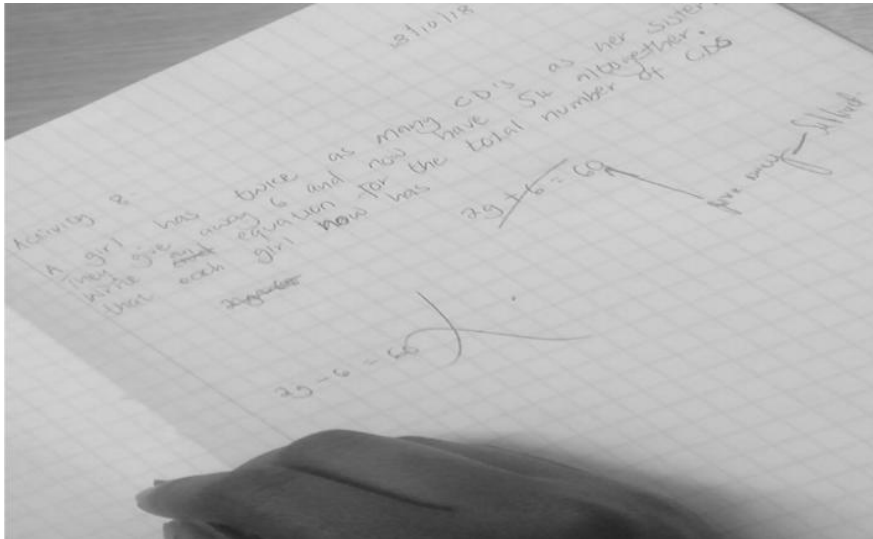 8/10/18
Activity 8
A girl has twice as many CD's as her sister.
They give away 6 and now have 54 altogether.
Write an equation for the total number of CDs
that each girl now has
2g + 6 = 60
give away
2g - 6 = 60